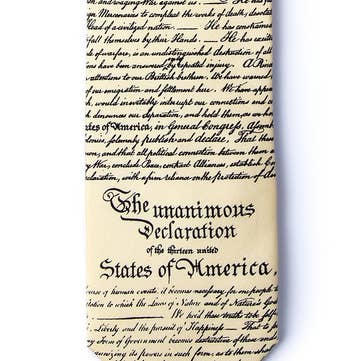 and waging War against us. — He has
high Mercenaries to compleat the works of death, desolat
Head of a civilized nation. — He has constrained
fall themselves by their Hands. — He has excit
of warfare, is an undistinguished destruction of all
have been answered by repeated injury. A Prin
attentions to our Brittish brethren. We have warned
of our emigration and settlement here. We have appea
which, would inevitably interrupt our connections and c
denounces our Separation, and hold them, as we ho
ates of America, in General Congress, Assem
olonies, solemnly publish and declare, That thes
on, and that all political connection between them
y War, conclude Peace, contract Alliances, establish Co
eclaration, with a firm reliance on the protection of
The unanimous
Declaration
of the thirteen united
States of America,
ourse of human events, it becomes necessary for one people
ation to which the Laws of Nature and of Nature's God
We hold these truths to be self
Liberty and the pursuit of Happiness — That to
Form of Government becomes destructive of these
powers in such form, as to them